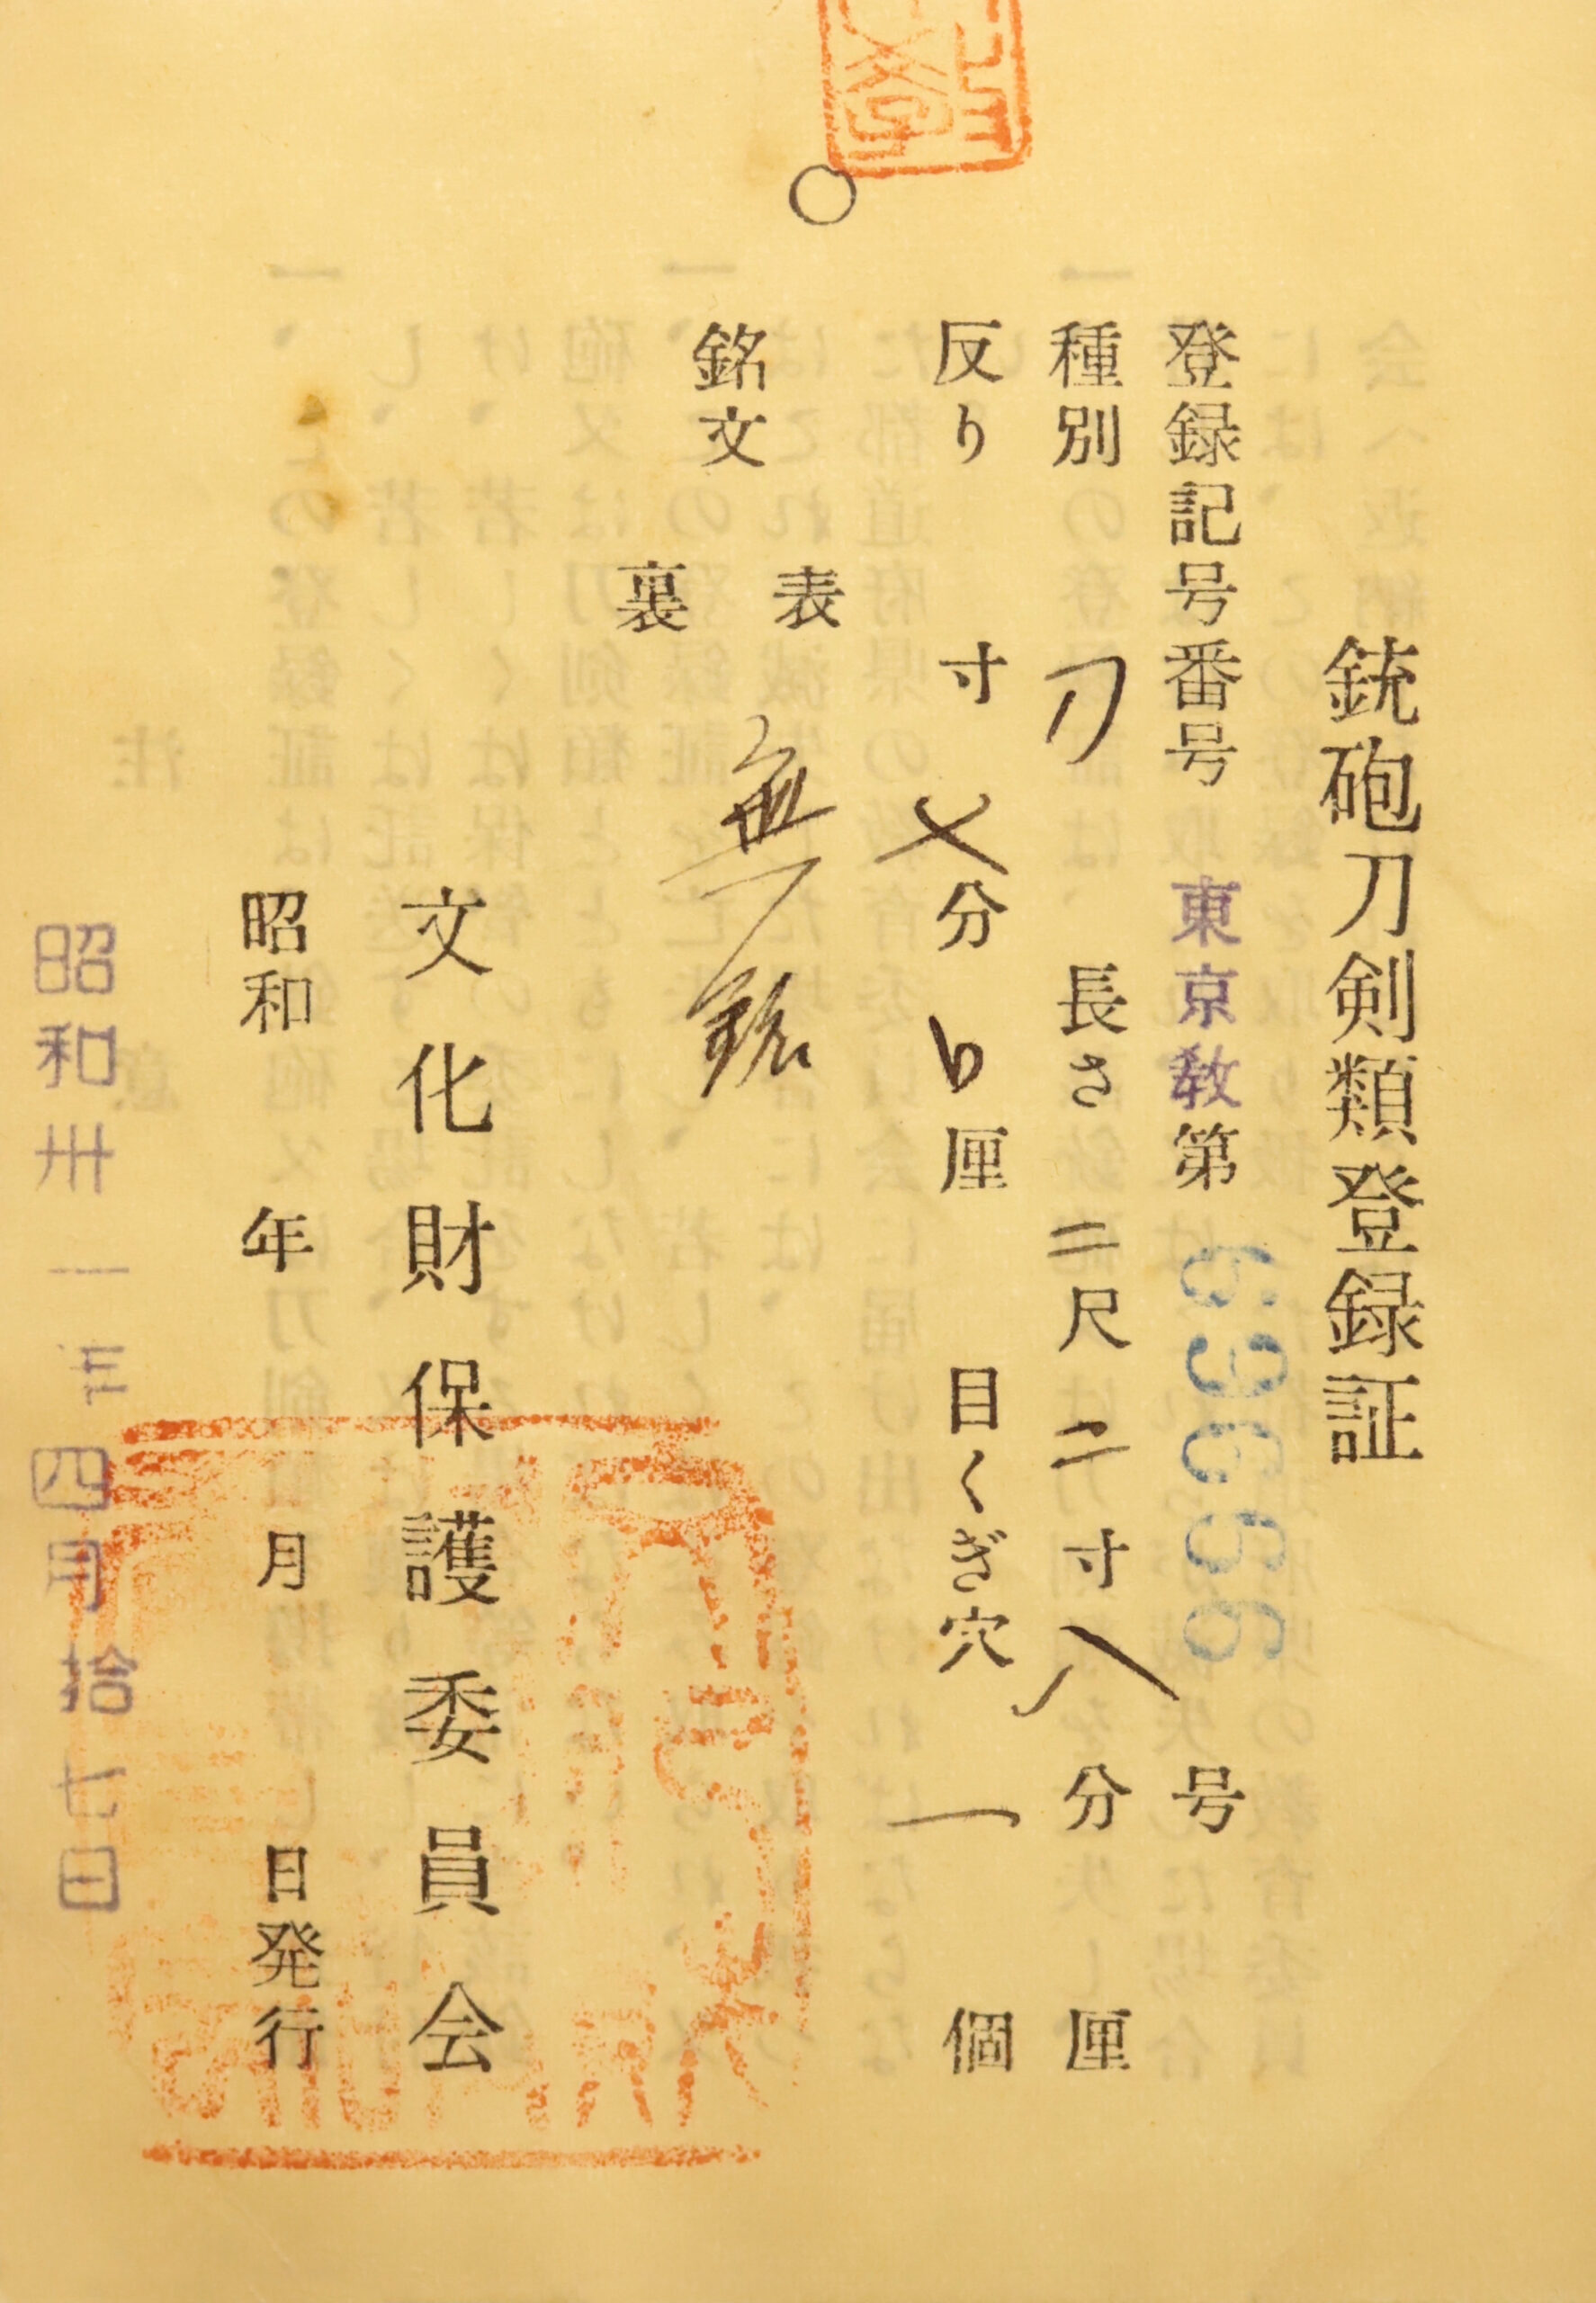 銃砲刀剣類登録証
登録記号番号 東京教第 号
種別 刀 長さ 二尺 二寸 八分 厘
反り 寸 分 厘 目くぎ穴 一 個
銘文 表 無銘
裏
文化財保護委員会
昭和 年 月 日発行
昭和卅一年四月拾七日